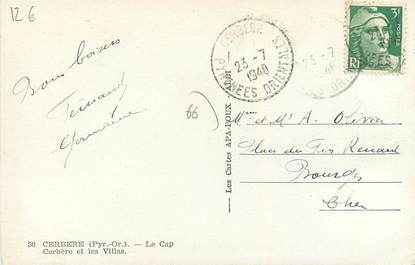 12 €
Bons baisers
Fernand
Germaine
66
CERBERE
23 -7
1948
PYRENEES ORIENTALES
3F
POSTES
RF
Les Cartes APA-POUX
Mme et Mr A. Olivier
Place du Gros Renard
Bourges
Cher
50 CERBERE (Pyr.-Or.). — Le Cap
Cerbère et les Villas.